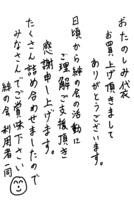 おたのしみ代衣
お買い上げ頂きまして
ありがとうございます。
日頃から絆の会の活動に
ご理解ご支援頂き
感謝申し上げます。
たくさん詰め合せましたので
みなさんでご賞味下さい
絆の会 利用者一同